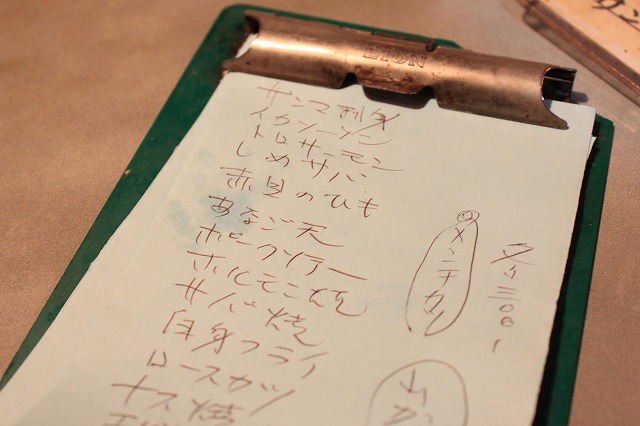 LION
サンマ刺身
イカソーメン
トロサーモン
しめサバ
赤貝のひも
あなご天
ポークソテー
ホルモン焼
サバ焼
白身フライ
ロースカツ
ナス焼
メンチカツ
各¥300
山か